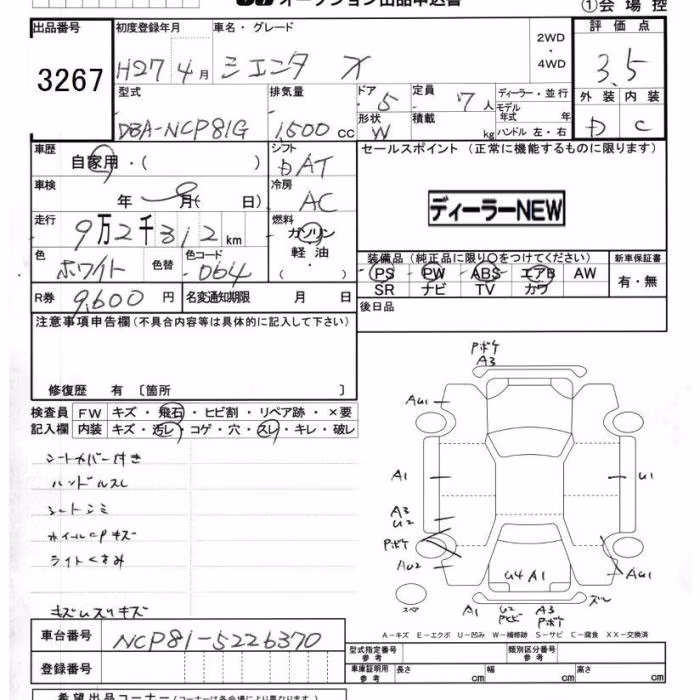 ①会場控
出品番号 初度登録年月 車名・グレード 評価点
3267 H27年 4月 シエンタ X 2WD・4WD 3.5
型式 排気量 ドア 5 定員 7人 ディーラー・並行 外装 内装
DBA-NCP81G 1,500 cc 形状 W 積載 kg モデル年式 年 ハンドル 左・右 D C
車歴 自家用・( ) シフト AT セールスポイント (正常に機能するものに限ります)
車検 年 月( 日) 冷房 AC
ディーラーNEW
走行 9万2千312km 燃料 ガソリン
軽油
・( )
色 ホワイト 色替 色コード 064
装備品 (純正品に限り○をつけてください) 新車保証書
PS PW ABS エアB AW 有・無
SR ナビ TV カワ
R券 9,600円 名変通知期限 月 日 後日品
注意事項申告欄 (不具合内容等は具体的に記入して下さい)
修復歴 有 〔箇所 〕
検査員 FW キズ・飛石・ヒビ割・リペア跡・×要
記入欄 内装 キズ・汚レ・コゲ・穴・スレ・キレ・破レ
シートカバー付き
ハンドルスレ
シートシミ
ホイールCPキズ
ライトくすみ
キズUスリキズ
Pボケ
A3
AU1
A1 U1
A3
U2
Pボケ
AU2 AU1
U4 A1
スペア A1 U2 A3 Pボケ スレ
A-キズ E-エクボ U-凹み W-補修跡 S-サビ C-腐食 XX-交換済
車台番号 NCP81-5226370
登録番号
型式指定番号 参考 類別区分番号 参考
車庫証明用 参考 長さ cm 幅 cm 高さ cm
希望出品コーナー